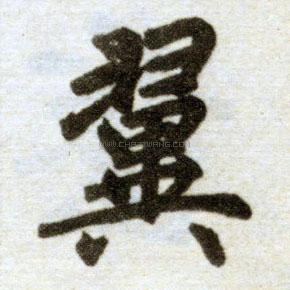 翼
WWW.CHAZIWANG.COM